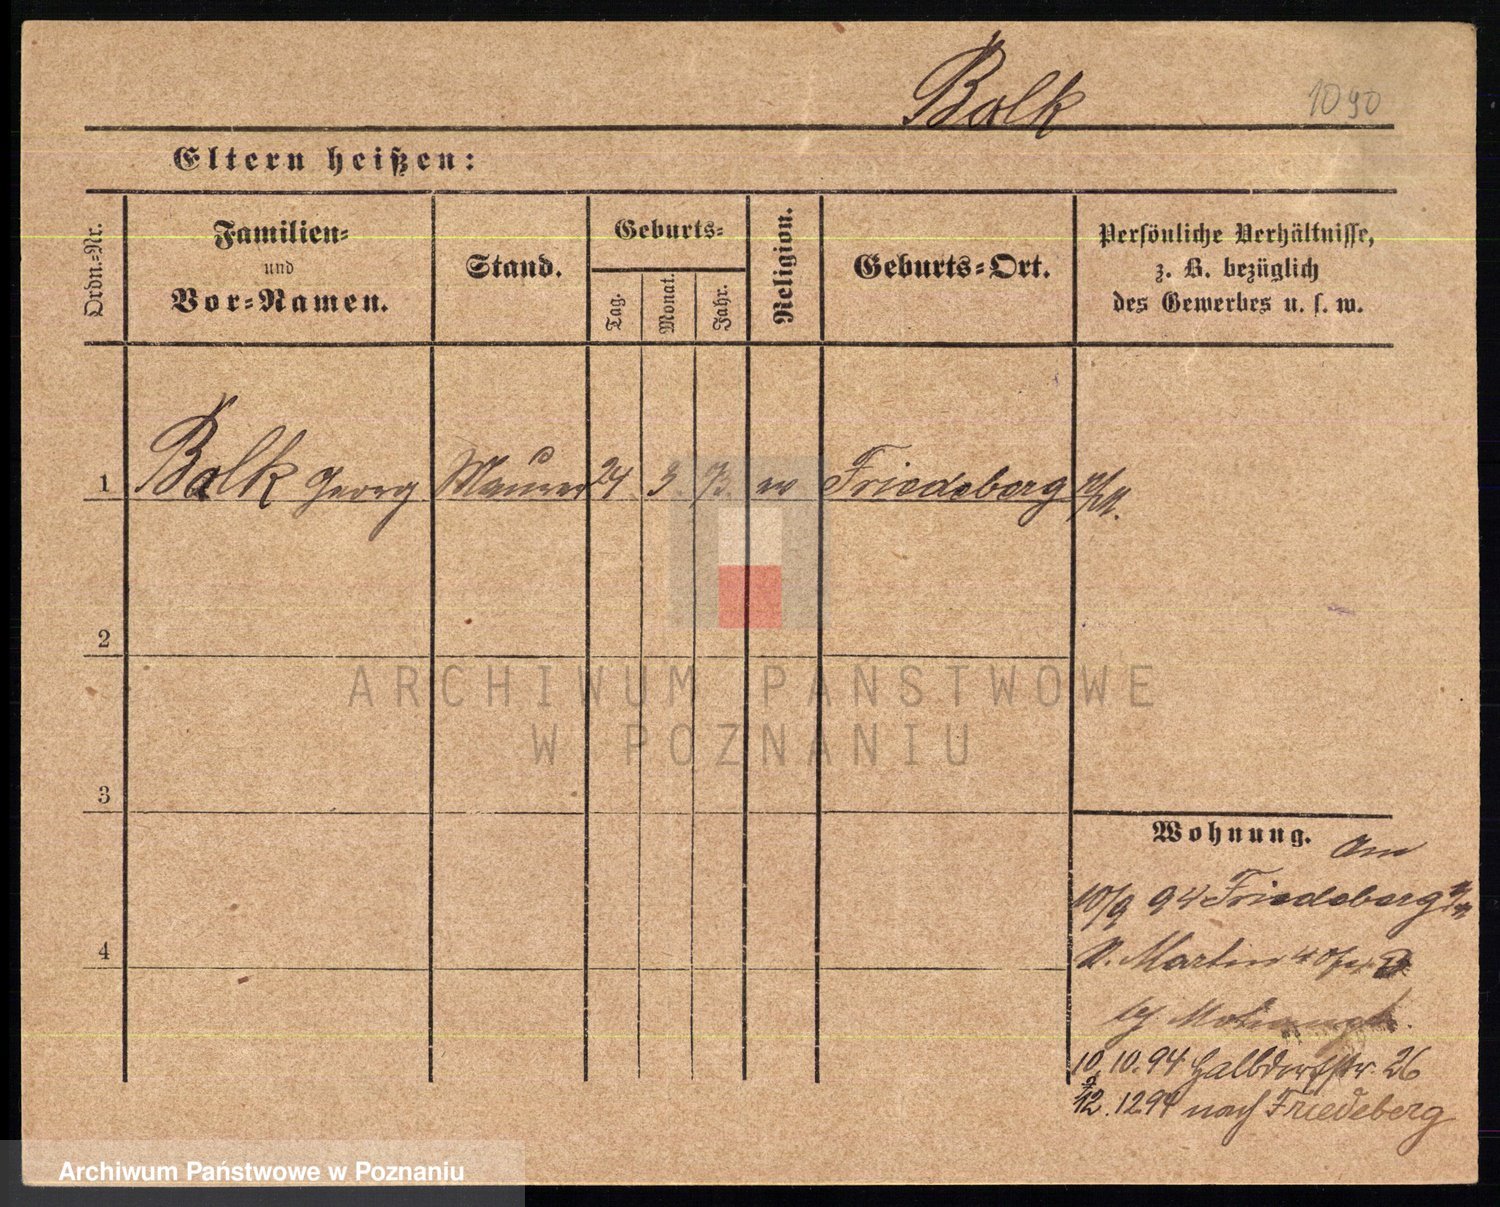 Balk 1090
Eltern heißen:
Ordn.-Nr.
Familien-
und
Vor-Namen.
Stand.
Geburts-
Tag.
Monat.
Jahr.
Religion.
Geburts-Ort.
Persönliche Verhältnisse,
z. B. bezüglich
des Gewerbes u. s. w.
1 Balk Georg Maurer 24. 3. 73. ev Friedeberg
2
3
4
Wohnung. Am
10/9 94 Friedeberg
St. Martin 40
10. 10. 94 Halbdorfstr. 26
12. 12 94 nach Friedeberg
ARCHIWUM PAŃSTWOWE
W POZNANIU
Archiwum Państwowe w Poznaniu